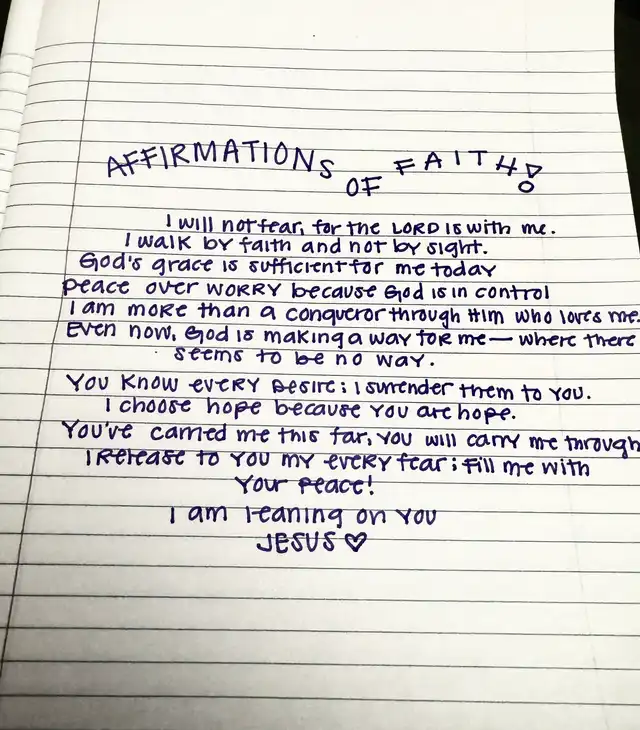 AFFIRMATIONS OF FAITH!
I will not fear, for the LORD is with me.
I walk by faith and not by sight.
God's grace is sufficient for me today
peace over worry because God is in control
I am more than a conqueror through Him who loves me.
Even now, God is making a way for me — where there
seems to be no way.
You know every desire; I surrender them to You.
I choose hope because You are hope.
You've carried me this far, You will carry me through
I release to You my every fear; fill me with
Your peace!
I am leaning on You
JESUS ♡